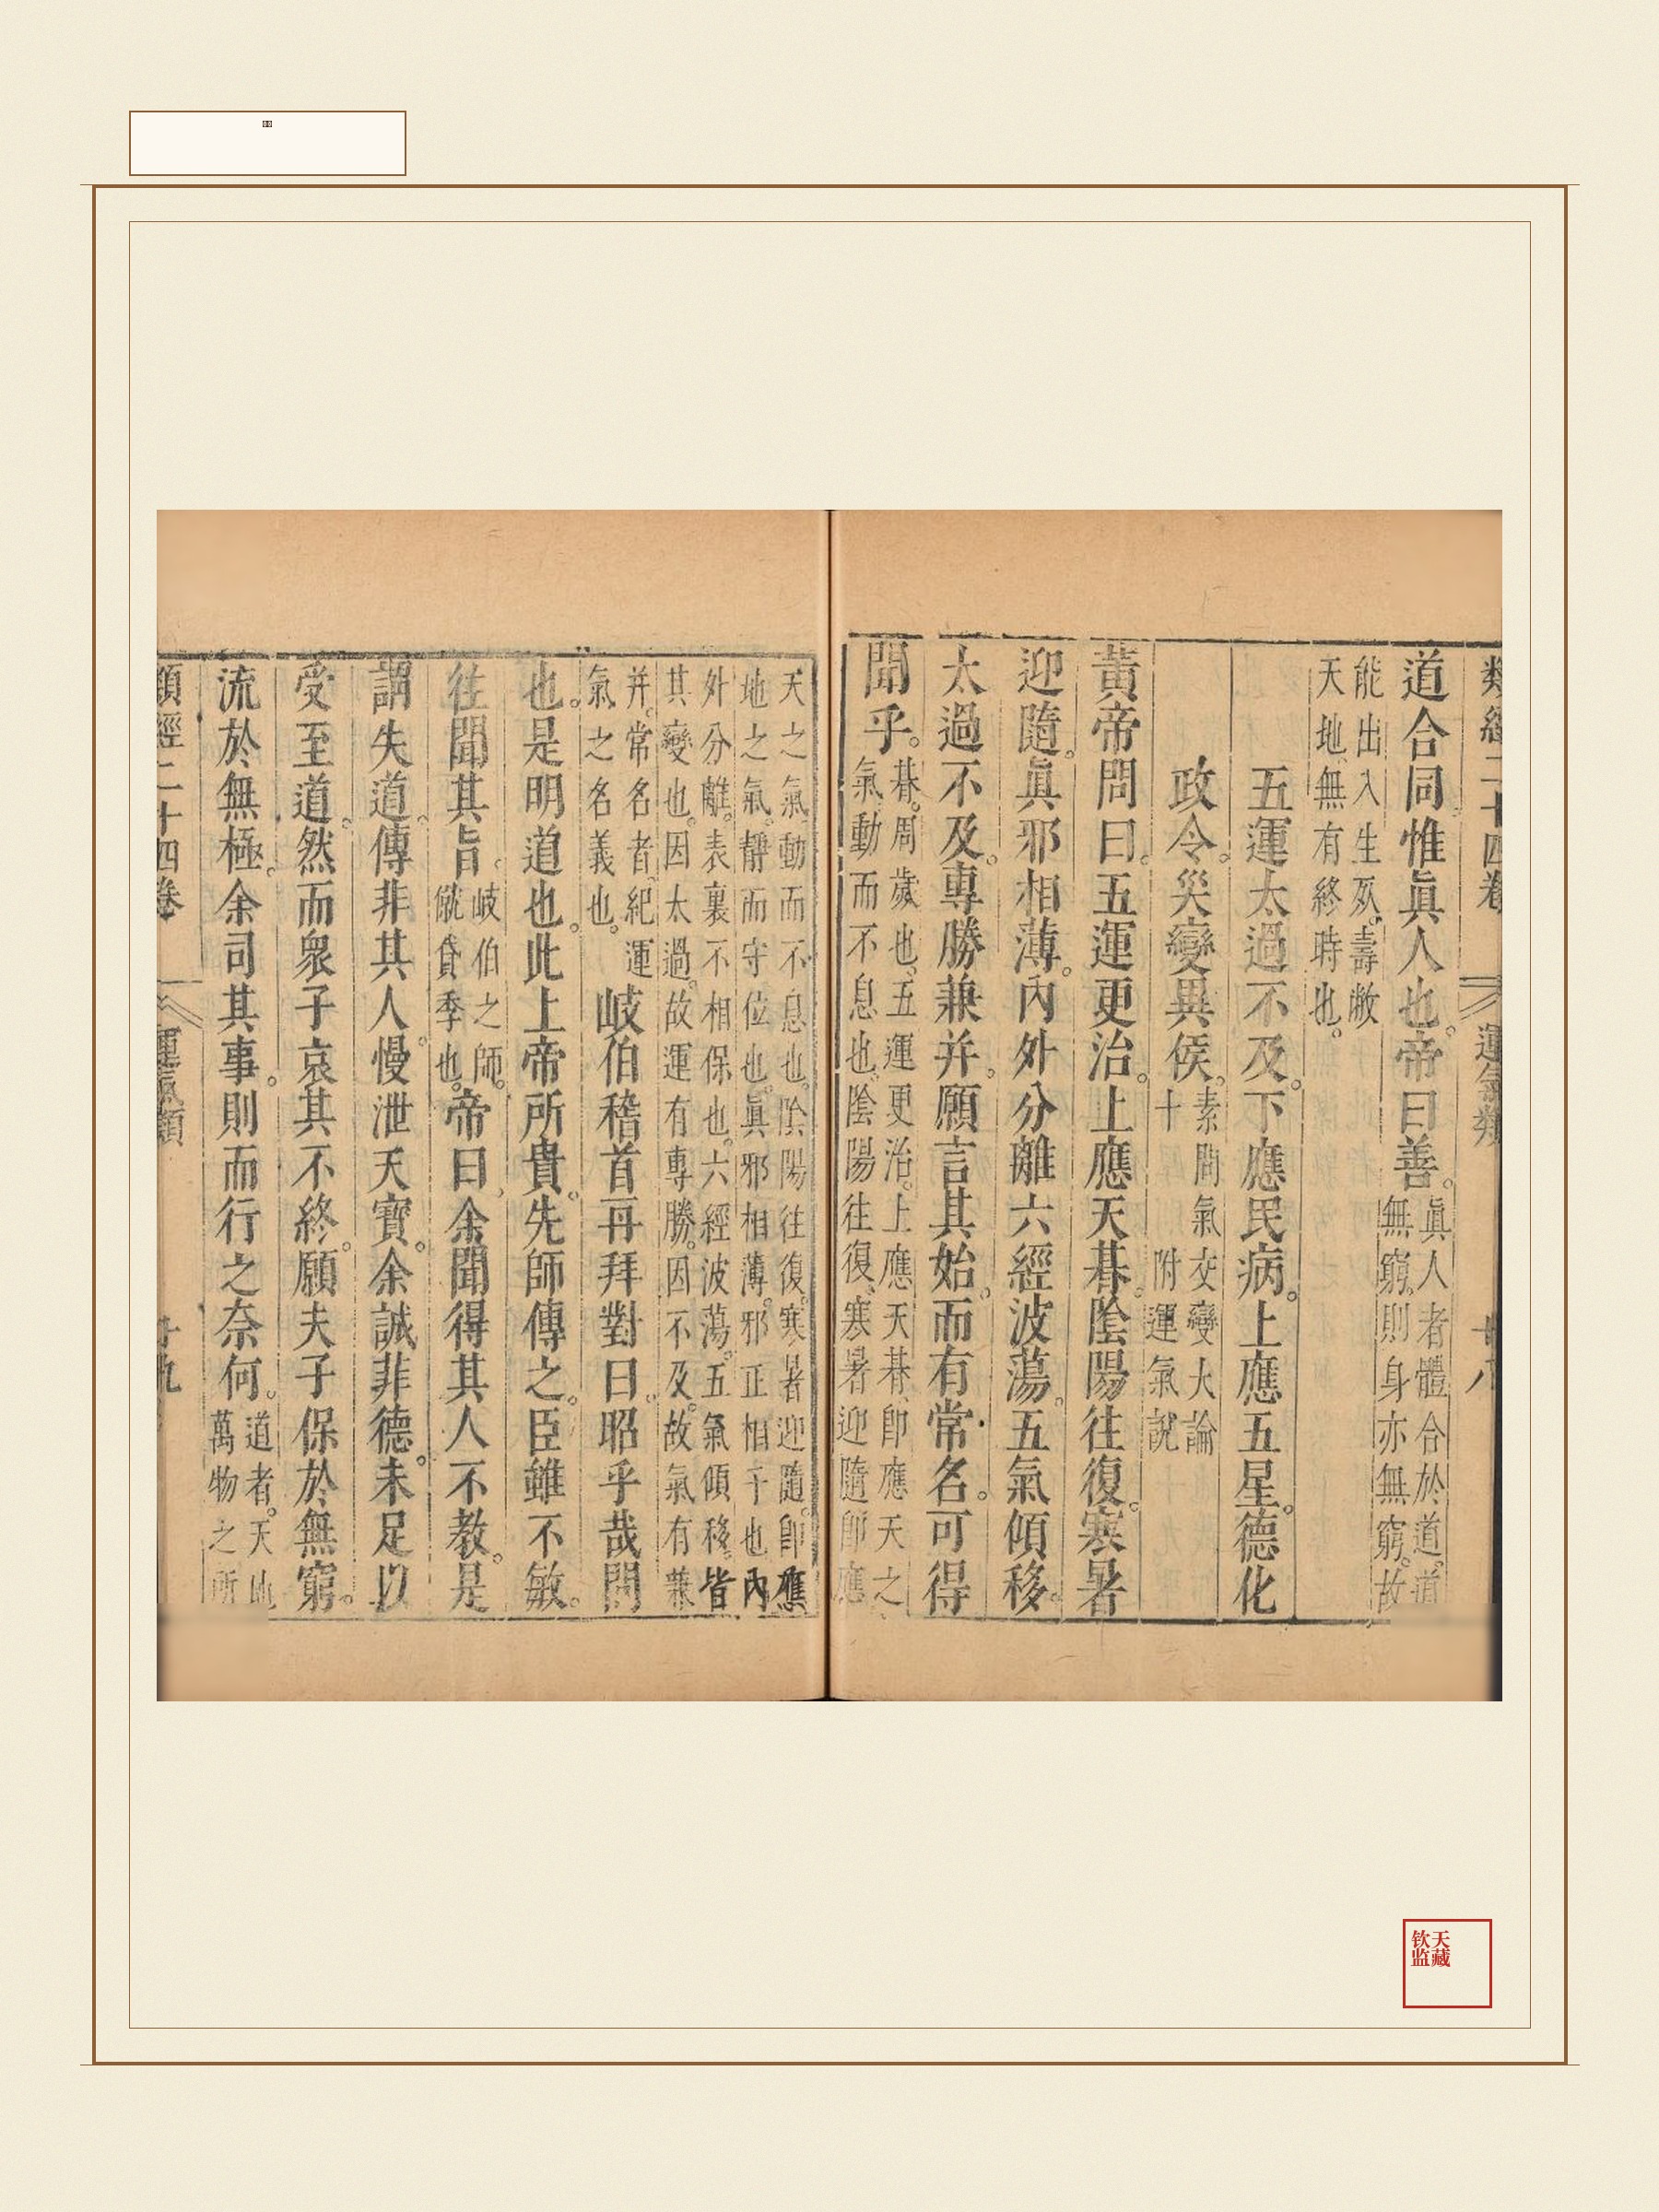 類經二十四卷 運氣類 十八
道合同惟眞人也帝曰善。眞人者體合於道道
無窮則身亦無窮故
能出入生死壽敝
天地無有終時也。
五運太過不及。下應民病。上應五星。德化
政令。災變異侯。素問氣交變大論
十附運氣說
黃帝問曰。五運更治。上應天朞。陰陽往復。寒暑
迎隨。眞邪相薄。內外分離六經波蕩。五氣傾移。
太過不及。專勝兼并。願言其始。而有常名。可得
聞乎。朞。周歲也。五運更治。上應天朞、卽應天之
氣動而不息也。陰陽往復、寒暑迎隨卽應
天之氣動而不息也。陰陽往復寒暑迎隨卽應
地之氣靜而守位也。眞邪相薄。邪正相干也內
外分離。表裏不相保也。六經波蕩。五氣傾移。皆
其變也。因太過。故運有專勝。因不及。故氣有兼
并。常名者。紀運
氣之名義也。岐伯稽首再拜對曰。昭乎哉問
也。是明道也。此上帝所貴。先師傳之。臣雖不敏。
往聞其旨。岐伯之師。
僦貸季也。帝曰、余聞得其人不教。是
謂失道。傳非其人。慢泄天寶。余誠非德。未足以
受至道。然而衆子哀其不終。願夫子保於無窮。
流於無極。余司其事。則而行之奈何。道者。天地
萬物之所
類經二十四卷 運氣類 十九
钦天
监藏